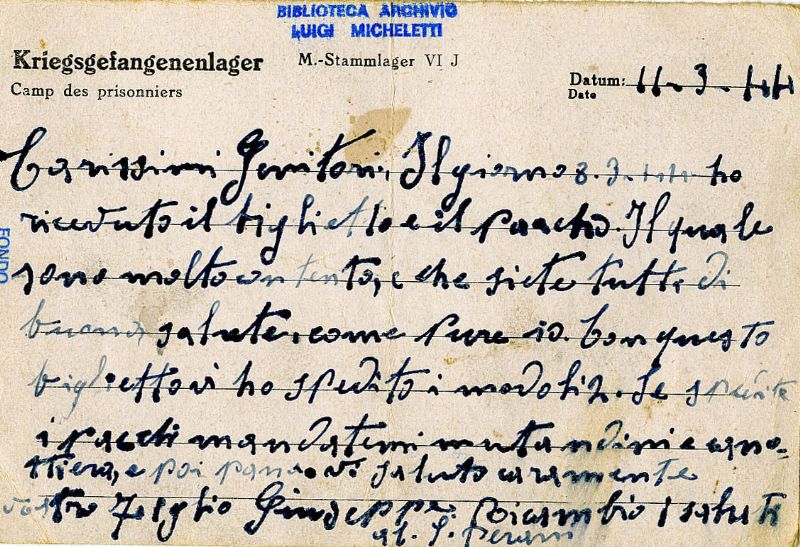 BIBLIOTECA ARCHIVIO
LUIGI MICHELETTI
Kriegsgefangenenlager M.-Stammlager VI J
Camp des prisonniers
Datum: 11-3-44
Date
FONDO
Carissimi Genitori, Il giorno 8.3.44 ho
ricevuto il biglietto e il paccho. Il quale
sono molto contento, e che siete tutti di
buona salute, come pure io. Con questo
biglietto vi ho spedito i modoli 2. Se spedite
i pacchi mandatemi mutandini e cano-
ttiera, e poi pane vi saluto caramente
vostro figlio Giuseppe. Ricambio i saluti
al S.